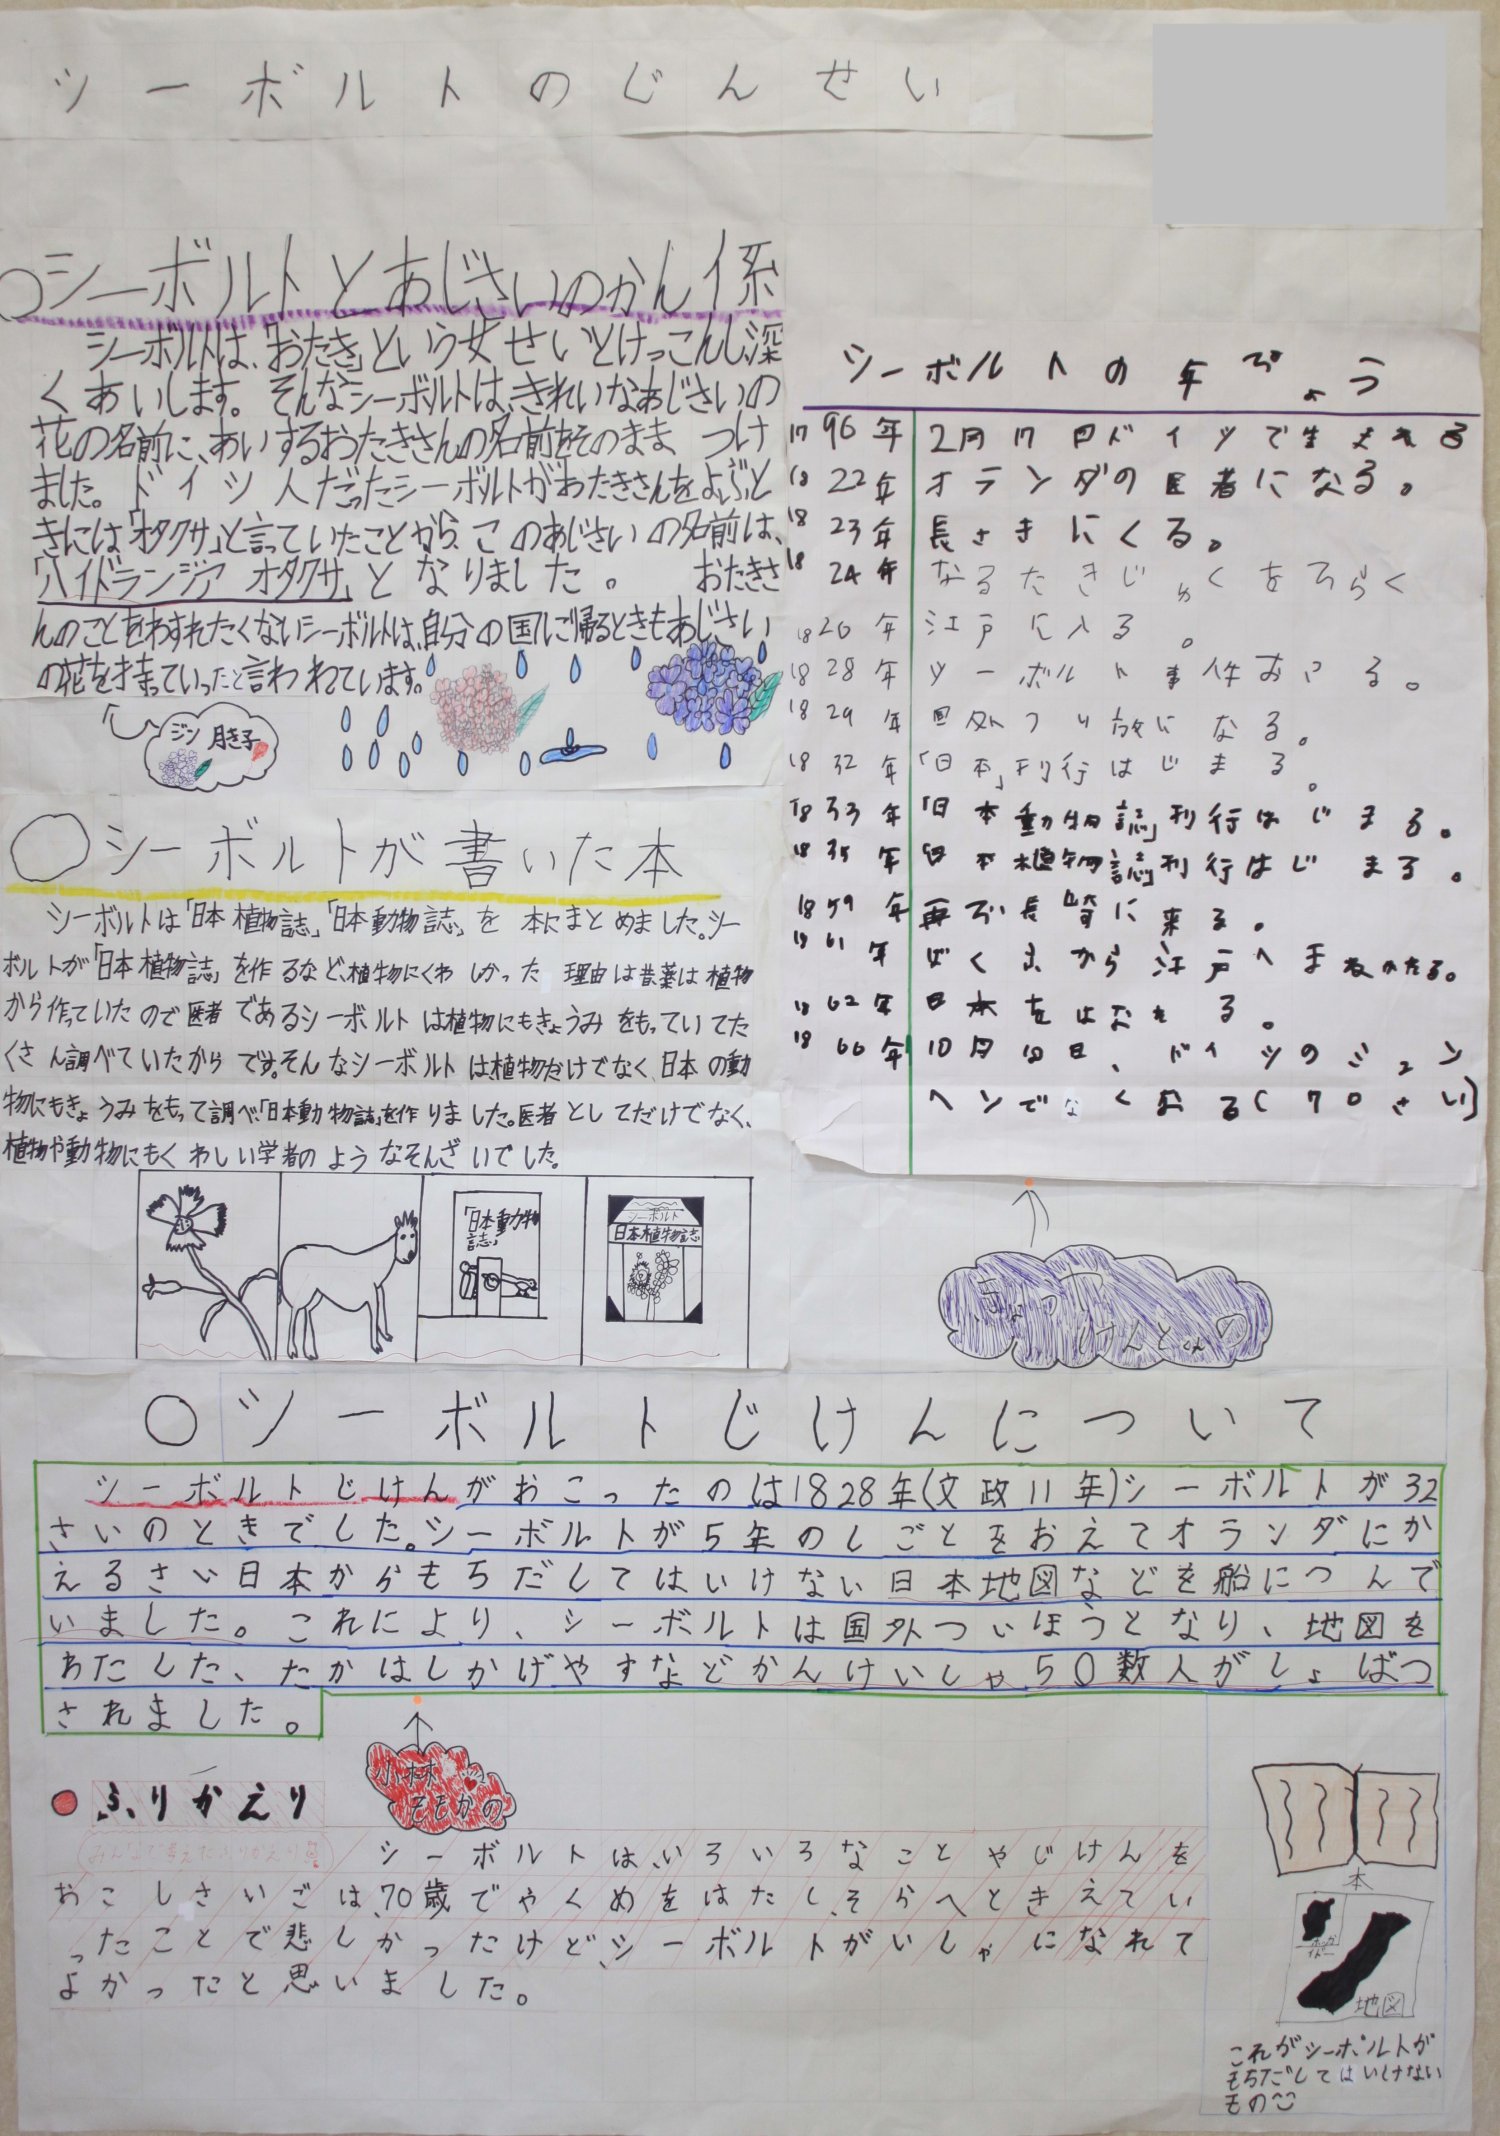 シーボルトのじんせい
○シーボルトとあじさいのかん係
シーボルトは、「おたき」という女せいとけっこんし、深
くあいします。そんなシーボルトは、きれいなあじさいの
花の名前に、あいするおたきさんの名前をそのまま つけ
ました。ドイツ人だったシーボルトがおたきさんをよぶと
きには「オタクサ」と言っていたことから、このあじさいの名前は、
「ハイドランジア オタクサ」となりました。 おたきさ
んのことをわすれたくないシーボルトは、自分の国に帰るときもあじさい
の花を持っていったと言われています。
○シーボルトが書いた本
シーボルトは「日本植物誌」「日本動物誌」を本にまとめました。シー
ボルトが「日本植物誌」を作るなど、植物にくわしかった 理由は昔薬は植物
から作っていたので医者であるシーボルトは植物にもきょうみをもっていてた
くさん調べていたからです。そんなシーボルトは植物だけでなく、日本の動
物にもきょうみをもって調べ、「日本動物誌」を作りました。医者としてだけでなく、
植物や動物にもくわしい学者のようなそんざいでした。
「日本動物
誌」
シーボルト
日本植物誌
シーボルトの年ぴょう
1796年 2月17日ドイツで生まれる
1822年 オランダの医者になる。
1823年 長さきにくる。
1824年 なるたきじゅくをひらく
1826年 江戸に入る。
1828年 シーボルト事件おこる。
1829年 国外つい放になる。
1832年 「日本」刊行はじまる。
1833年 「日本動物誌」刊行はじまる。
1835年 「日本植物誌」刊行はじまる。
1859年 再び長崎に来る。
1861年 ばくふから江戸へまねかれる。
1862年 日本をはなれる。
1866年 10月18日、ドイツのミュン
ヘンでなくなる(70さい)
○シーボルトじけんについて
シーボルトじけんがおこったのは1828年(文政11年)シーボルトが32
さいのときでした。シーボルトが5年のしごとをおえてオランダにか
えるさい日本からもちだしてはいけない日本地図などを船につんで
いました。これにより、シーボルトは国外ついほうとなり、地図を
わたした、たかはしかげやすなどかんけいしゃ50数人がしょばつ
されました。
小林
ももかの
●ふりかえり
シーボルトは、いろいろなことやじけんを
おこしさいごは、70歳でやくめをはたし、そらへときえてい
ったことで悲しかったけど、シーボルトがいしゃになれて
よかったと思いました。
本
地図
これがシーボルトが
もちだしてはいけない
もの